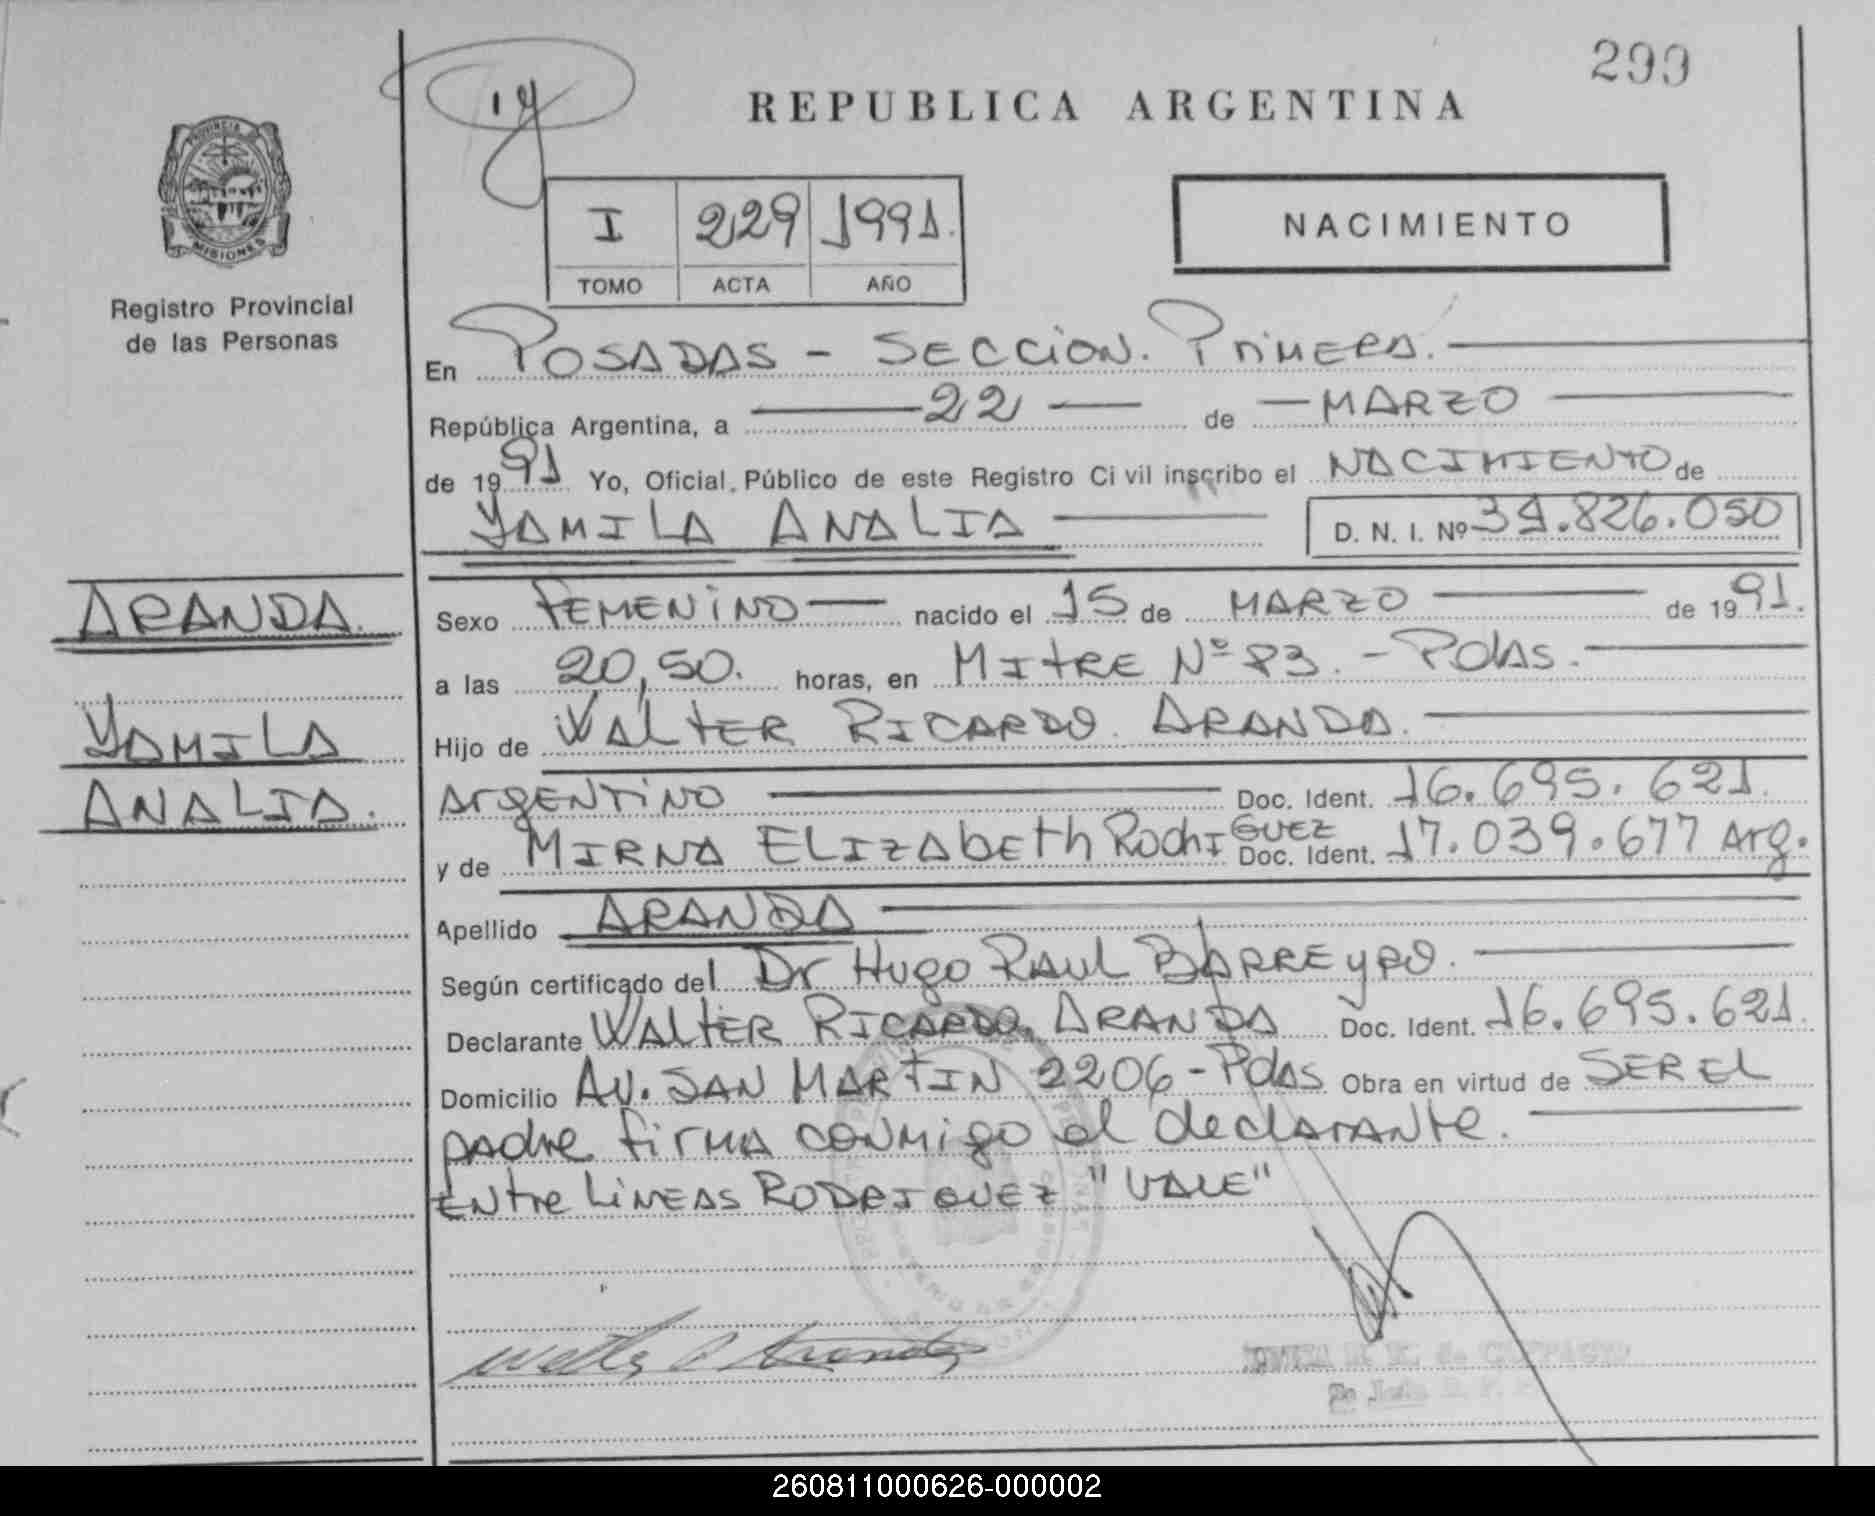 299
19
REPUBLICA ARGENTINA
PROVINCIA DE
MISIONES
Registro Provincial
de las Personas
I 229 1991.
TOMO ACTA AÑO
NACIMIENTO
En POSADAS - SECCION. PRIMERA.
República Argentina, a 22 de MARZO
de 1991 Yo, Oficial Público de este Registro Ci vil inscribo el NACIMIENTO de
YAMILA ANALIA D. N. I. Nº 34.826.050
ARANDA.
YAMILA
ANALIA.
Sexo FEMENINO nacido el 15 de MARZO de 1991.
a las 20,50. horas, en MITRE Nº 83. - Pdas.
Hijo de WALTER RICARDO. ARANDA.
ARGENTINO Doc. Ident. 16.695.621.
GUEZ
y de MIRNA ELIZAbETh RodRI Doc. Ident. 17.039.677 Arg.
Apellido ARANDA
Según certificado del Dr Hugo RAUL BARREYRO.
Declarante WALTER RICARDO. ARANDA Doc. Ident. 16.695.621.
Domicilio AV. SAN MARTIN 2206 - Pdas Obra en virtud de SER EL
padre firma conmigo el declarante.
ENtre LiNEAS RODRIGUEZ "VALE"
260811000626-000002